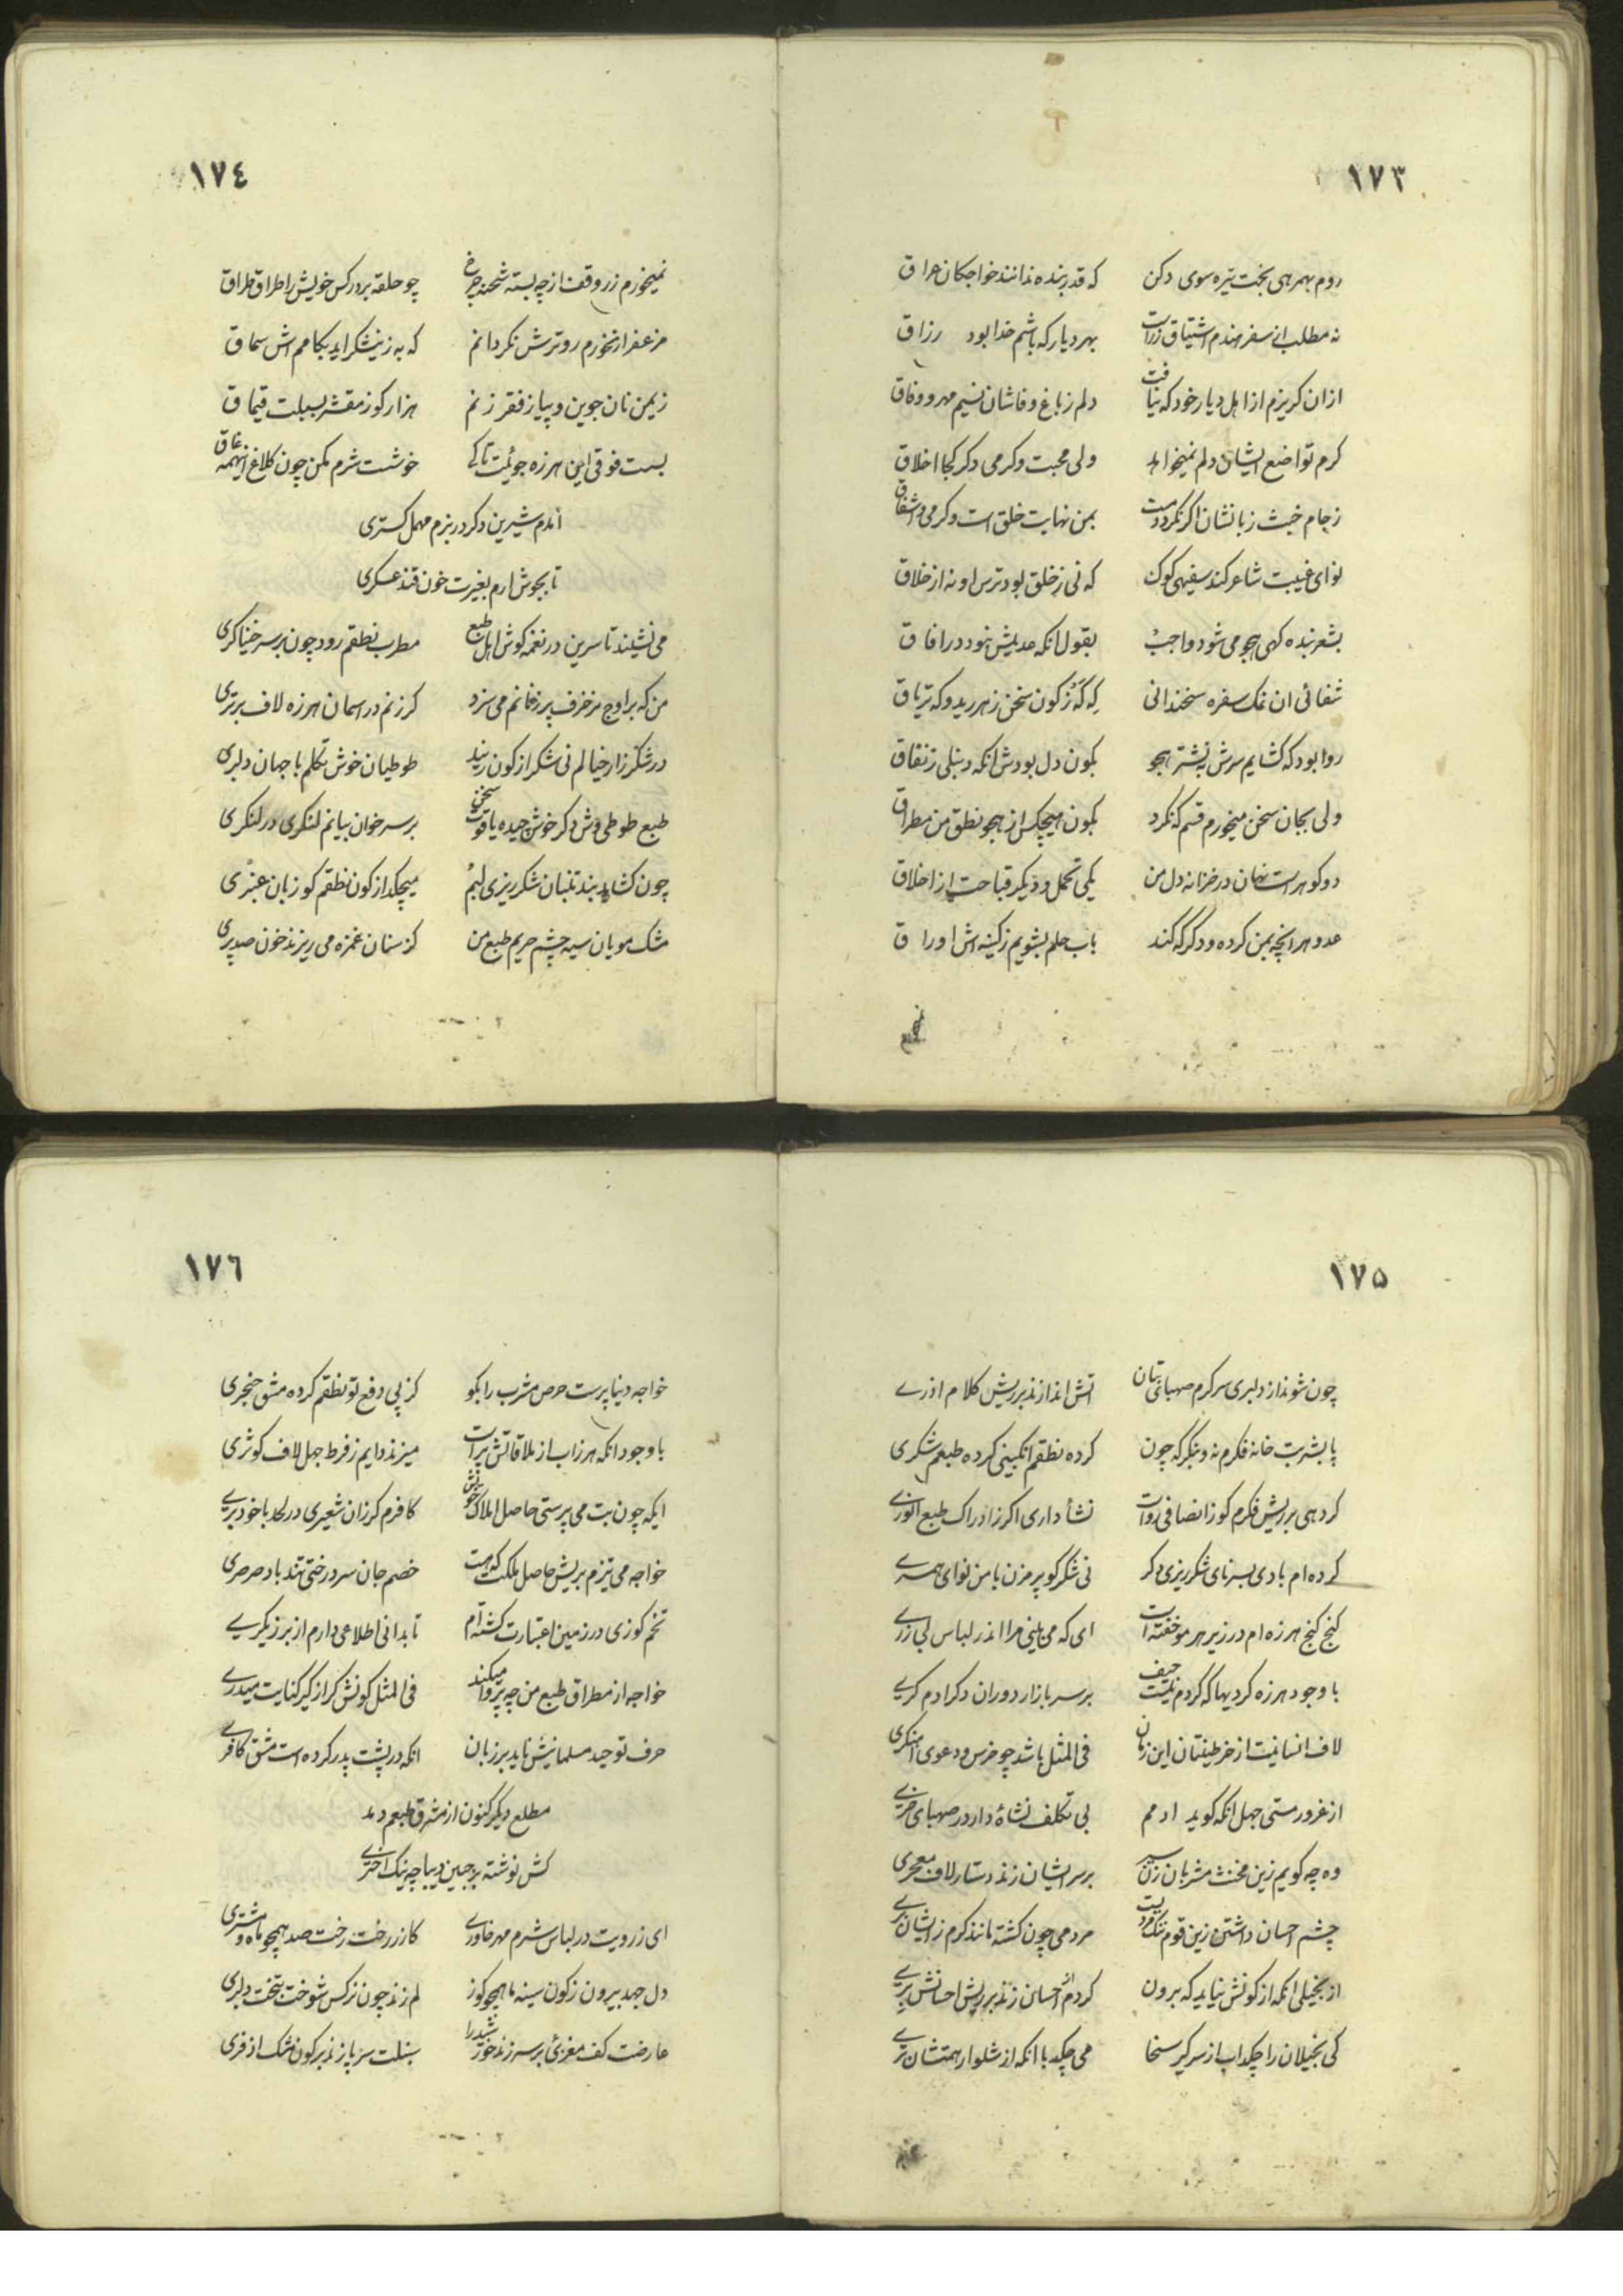 ١٧٣
روم بهمرهی بخت تیره سوی دکن که قدر بنده ندانند خواجکان عراق
نه مطلب از سفر هندم اشتیاق زراست بهر دیار که باشم خدا بود رزاق
ازان کریزم از اهل دیار خود که نیافت دلم زباغ وفاشان نسیم مهر و وفاق
کرم تواضع ایشان دلم نمیخواهد ولی محبت و کرمی دکر کجا اخلاق
زجام خبث زبانشان اکر نکردد مست بمن نهایت خلق است و کرمی و اشفاق
لوای غیبت شاعر کند سفیهی کوک که نی زخلق بود ترس او نه از خلاق
بشعر بنده کهی هجو می شود واجب بقول انکه عدیلش نبود در افاق
شفائی ان نمک سفره سخندانی که که زکون سخن زهر رید و که تریاق
روا بود که کشایم سرش به نشتر هجو بکون دل بودش انکه دنبلی زنفاق
ولی بجان سخن میخورم قسم که نکرد بکون هیچکس از هجو نطق من مطراق
دو کوهر است نهان در خزانه دل من یکی تحمل و دیکر قباحت از اخلاق
عدو هر انچه بمن کرده و دکر که کند باب حلم بشویم زکینه اش اوراق
١٧٤
نمیخورم زر وقف از چه بسته شحنه چرخ چو حلقه بر در کس خویش را طراق طراق
مزعفر ار نخورم رو ترش نکردانم که به زنیشکر اید بکامم اش سماق
زیمن نان جوین و پیاز فقر زنم هزار کوز مقشر بسبلت قیماق
بست فوقی این هرزه جوئیت تا کی خوشست شرم مکن چون کلاغ اینهمه غاق
امدم شیرین دکر در بزم مهمل کستری
تا بجوش ارم بغیرت خون قند عسکری
می نشیند تا سرین در نغمه کوش اهل طبع مطرب نطقم رود چون بر سر خنیاکری
من که بر اوج مزخرف پر زنانم می سزد کر زنم در اسمان هرزه لاف برتری
در شکرزار خیالم نی شکر از کون زنند طوطیان خوش تکلم با جهان دلبری
طبع طوطی وش دکر خوش چیده یاقوت سخن بر سر خوان بیانم لنکری در لنکری
چون کشاید بند تنبان شکرریزی لبم میچکد از کون نطقم کو زبان عنبری
مشک مویان سیه چشم حریم طبع من کز سنان غمزه می ریزند خون صد پری
١٧٥
چون شوند از دلبری سرکرم صهبای بتان اتش اندازند بر ریش کلام اذری
پا بشربت خانه فکرم نه و بنکر که چون کرده نطقم انکبینی کرده طبعم شکری
کر دهی بر ریش فکرم کوز انصافی رواست نشأ داری اکر زادراک طبع انوری
کرده ام بادی بسرنای شکرریزی دکر نی شکر کو پر مزن با من نوای همسری
کنج کنج هرزه ام در زیر هر مو خفته است ای که می بینی مرا اندر لباس بی زری
با وجود هرزه کردیها که کردم نیست حیف بر سر بازار دوران دکر ادم کری
لاف انسانیت از خر طینتان این زمان فی المثل باشد چو خرس و دعوی اهنکری
از غرور مستی جهل انکه کوید ادمم بی تکلف نشاة دارد ز صهبای خری
وه چه کویم زین مخنث مشربان زن سیر بر سر ایشان زند دستار لاف معجری
چشم احسان داشتن زین قوم نیک مردمی چون کشته مانند کرم ز ایشان بری
از بخیلی انکه از کونش نیاید که برون کر دم از احسان زند بر ریش احسانش بری
کی بخیلان را چکد اب از سر کیر سخا می چکد با انکه از شلوار همتشان تری
١٧٦
خواجه دنیا پرست حرص مشرب را بکو کز پی دفع تو نطقم کرده مشق خنجری
با وجود انکه هرزاب از ملاقاتش پر است میزند دایم زفرط جهل لاف کوثری
ایکه چون بت می پرستی حاصل املاک خویش کافرم کر زان شعیری در لحد با خود بری
خواجه می تیزم بریش حاصل ملکت که هست خصم جان سر درختی تند باد صرصری
تخم کوزی در زمین اعتبارت کشته ام تا بدانی اطلاعی دارم از برزیکری
خواجه از مطراق طبع من چه پروا میکند فی المثل کونش کر از کیر کنایت میدری
حرف توحید مسلمانیش ناید بر زبان انکه در پشت پدر کرده است مشق کافری
مطلع دیکر کنون از مشرق طبعم دمد
کش نوشته بر جبین دیباچه نیک اختری
ای زرویت در لباس شرم مهر خاوری کازر رخت رخت صد همچو ماه و مشتری
دل جهد بیرون زکون سینه ها همچو کوز لم زند چون نرکس شوخت بتخت دلبری
عارضت کف مغزئ بر سر زند خورشید را سنبلت سر پا زند بر کون مشک اذفری